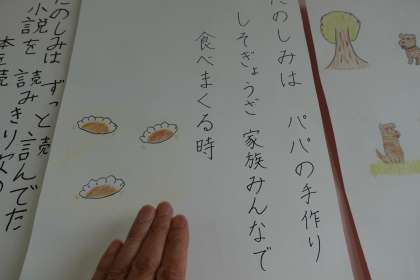 たのしみは パパの手作り
しそぎょうざ 家族みんなで
食べまくる時
たのしみは ずっと読んでた
小説を 読みきり次の
本を読